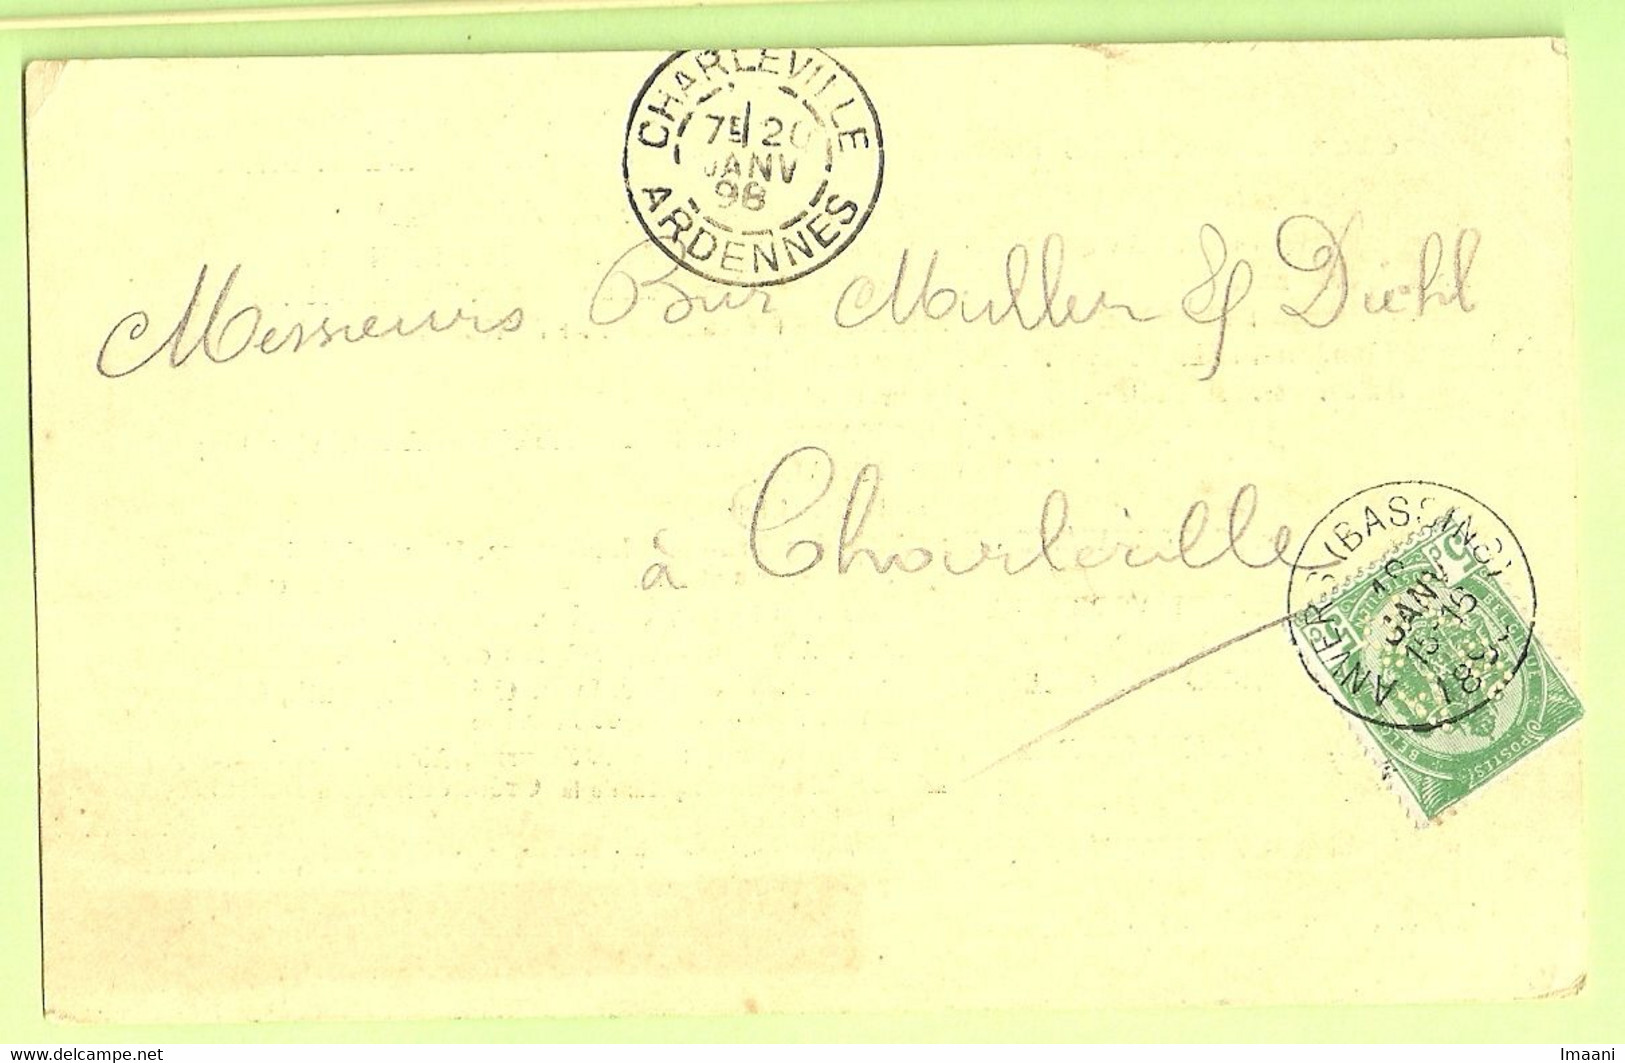 CHARLEVILLE
7E 20
JANV
98
ARDENNES
Messieurs Bur Muller & Diehl
à Charleville
ANVERS (BASSINS)
JANV
POSTES
5
5
delcampe.net
Imaani